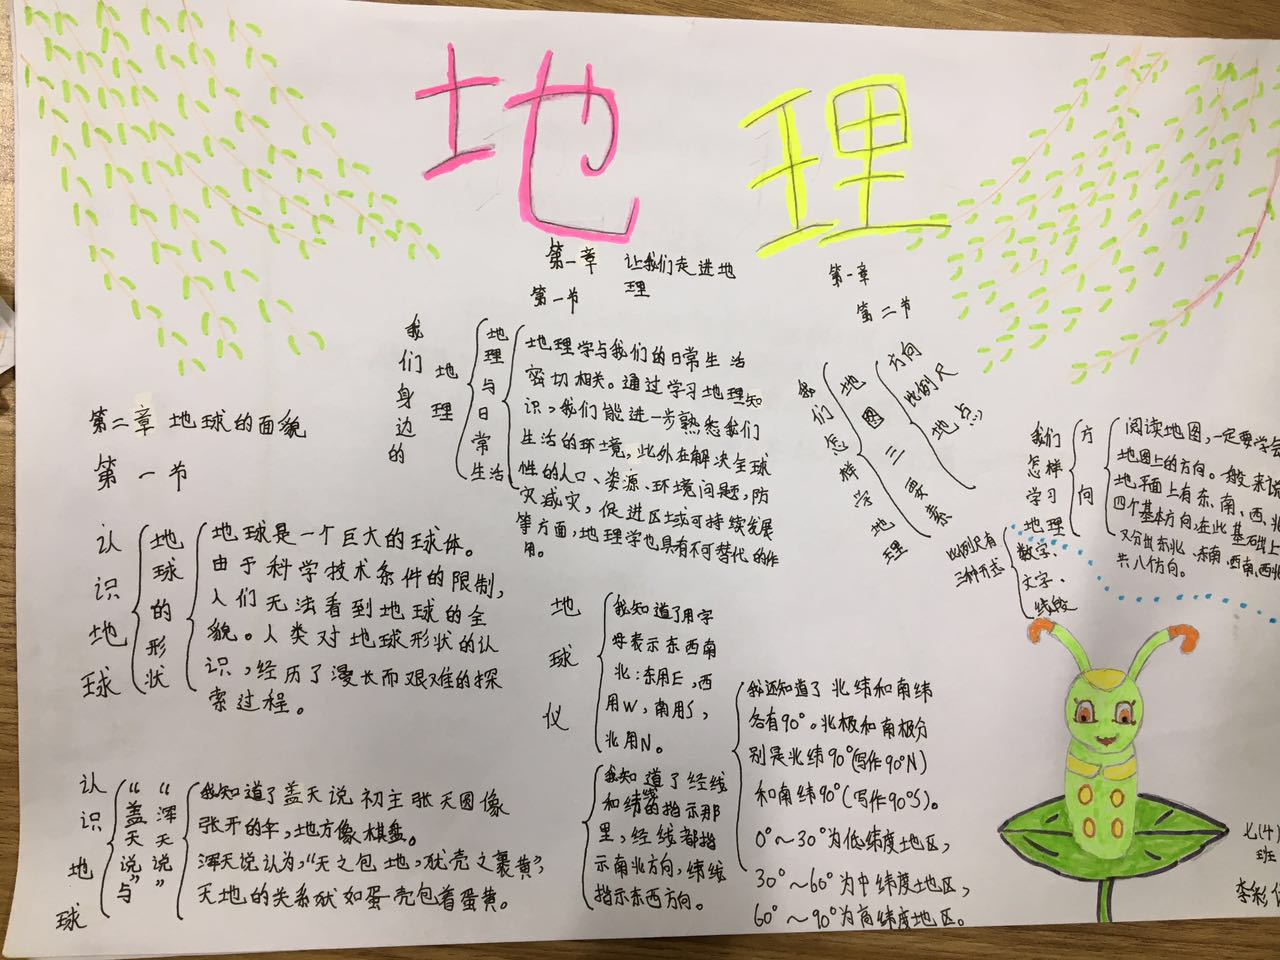 地理
第一章 让我们走进地
理
第一节
我们身边的
地理
地理与日常生活
地理学与我们的日常生活
密切相关。通过学习地理知
识,我们能进一步熟悉我们
生活的环境,此外在解决全球
性的人口、资源、环境问题,防
灾减灾,促进区域可持续发展
等方面,地理学也具有不可替代的作
用。
第一章
第二节
我们怎样学地理
地图三要素
方向
比例尺
地点
我们怎样学习地理
方向
阅读地图,一定要学会
地图上的方向。一般来说
地平面上有东、南、西、北
四个基本方向,在此基础上
又分出东北、东南、西南、西北
共八个方向。
比例尺有
三种形式
数字、
文字、
线段
第二章 地球的面貌
第一节
认识地球
地球的形状
地球是一个巨大的球体。
由于科学技术条件的限制,
人们无法看到地球的全
貌。人类对地球形状的认
识,经历了漫长而艰难的探
索过程。
认识地球
“盖天说”与
“浑天说”
我知道了盖天说初主张天圆像
张开的伞,地方像棋盘。
浑天说认为,“天之包地,犹壳之裹黄”,
天地的关系状如蛋壳包着蛋黄。
地球仪
我知道了用字
母表示东西南
北:东用E,西
用W,南用S,
北用N。
我知道了经线
和纬线的指示那
里,经线都指
示南北方向,纬线
指示东西方向。
我还知道了北纬和南纬
各有90°。北极和南极分
别是北纬90°(写作90°N)
和南纬90°(写作90°S)。
0°~30°为低纬度地区,
30°~60°为中纬度地区,
60°~90°为高纬度地区。
七(4)
班
李彩